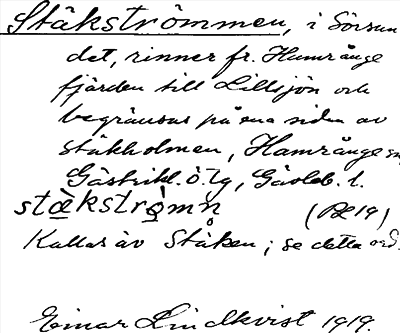 Stäkströmmen, i Sörsun
det, rinner fr. Hamrånge
fjärden till Lillsjön och
begränsas på ena sidan av
Stäkholmen, Hamrånge sn
Gästrikl. ö. tg, Gävleb. l.
stä̀kströ̀mn̥ (Bl 19)
Kallas äv Stäken; se detta ord.
Einar Lindkvist 1919.